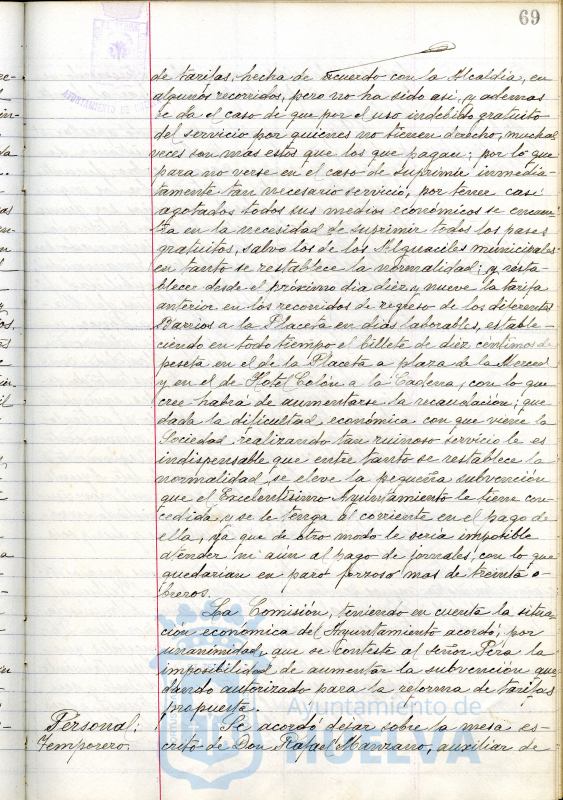 69
de tarifas, hecha de acuerdo con la Alcaldía, en
algunos recorridos, pero no ha sido asi, y ademas
se da el caso de que por el uso indebido gratuito
del servicio por quienes no tienen derecho, muchas
veces son mas estos que los que pagan; por lo que
para no verse en el caso de suprimir inmedia-
tamente tan necesario servicio, por tener casi
agotados todos sus medios económicos se encuen-
tra en la necesidad de suprimir todos los pases
gratuitos, salvo los de los Alguaciles municipales
en tanto se restablece la normalidad; y resta-
blecer desde el próximo dia diez y nueve la tarifa
anterior en los recorridos de regreso de los diferentes
Barrios a la Placeta en dias laborables, estable-
ciendo en todo tiempo el billete de diez centimos de
peseta en el de la Placeta a plaza de la Merced
y en el de Hotel Colón a la Cadena, con lo que
cree habrá de aumentarse la recaudación; que
dada la dificultad económica con que viene la
Sociedad realizando tan ruinoso servicio le es
indispensable que entre tanto se restablece la
normalidad, se eleve la pequeña subvención
que el Excelentísimo Ayuntamiento le tiene con-
cedida, y se le tenga al corriente en el pago de
ella, ya que de otro modo le seria imposible
atender ni aún al pago de jornales, con lo que
quedarían en paro forzoso mas de treinta o-
breros.
La Comisión, teniendo en cuenta la situa-
ción económica del Ayuntamiento acordó, por
unanimidad, que se conteste al señor Pera la
imposibilidad de aumentar la subvención que-
dando autorizado para la reforma de tarifas
propuesta.
Personal;
Temporero.
Se acordó dejar sobre la mesa es-
crito de Don Rafael Manzano, auxiliar de
Ayuntamiento de
HUELVA